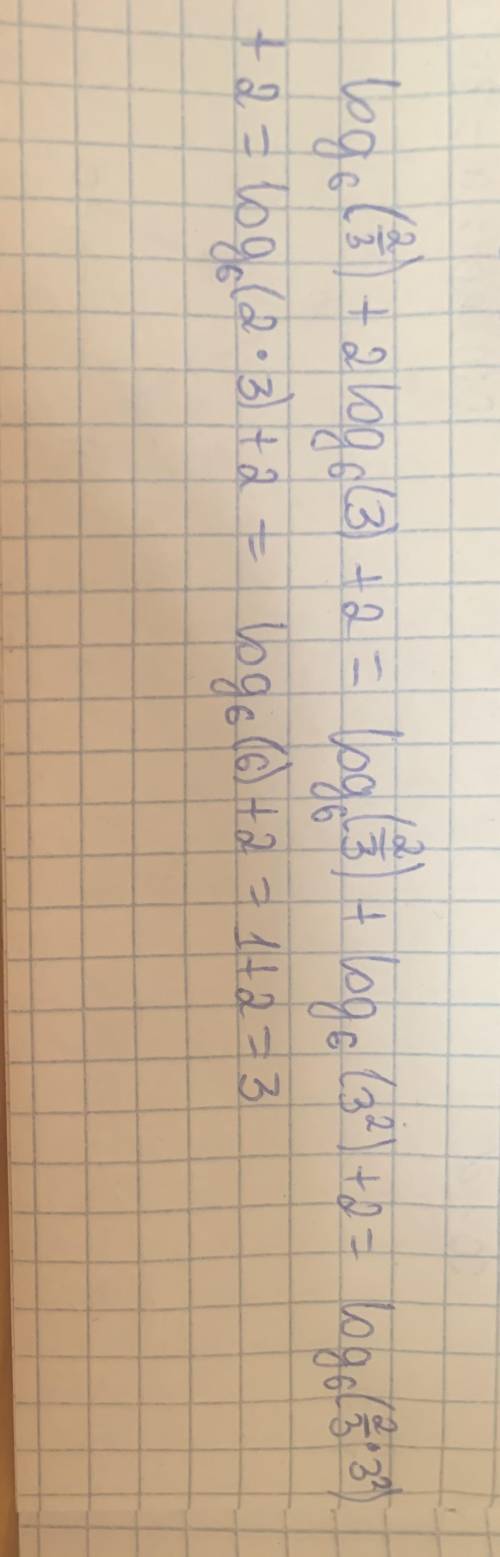 log₆(2/3) + 2log₆(3) + 2 = log₆(2/3) + log₆(3²) + 2 = log₆(2/3 · 3²)
+ 2 = log₆(2 · 3) + 2 = log₆(6) + 2 = 1 + 2 = 3